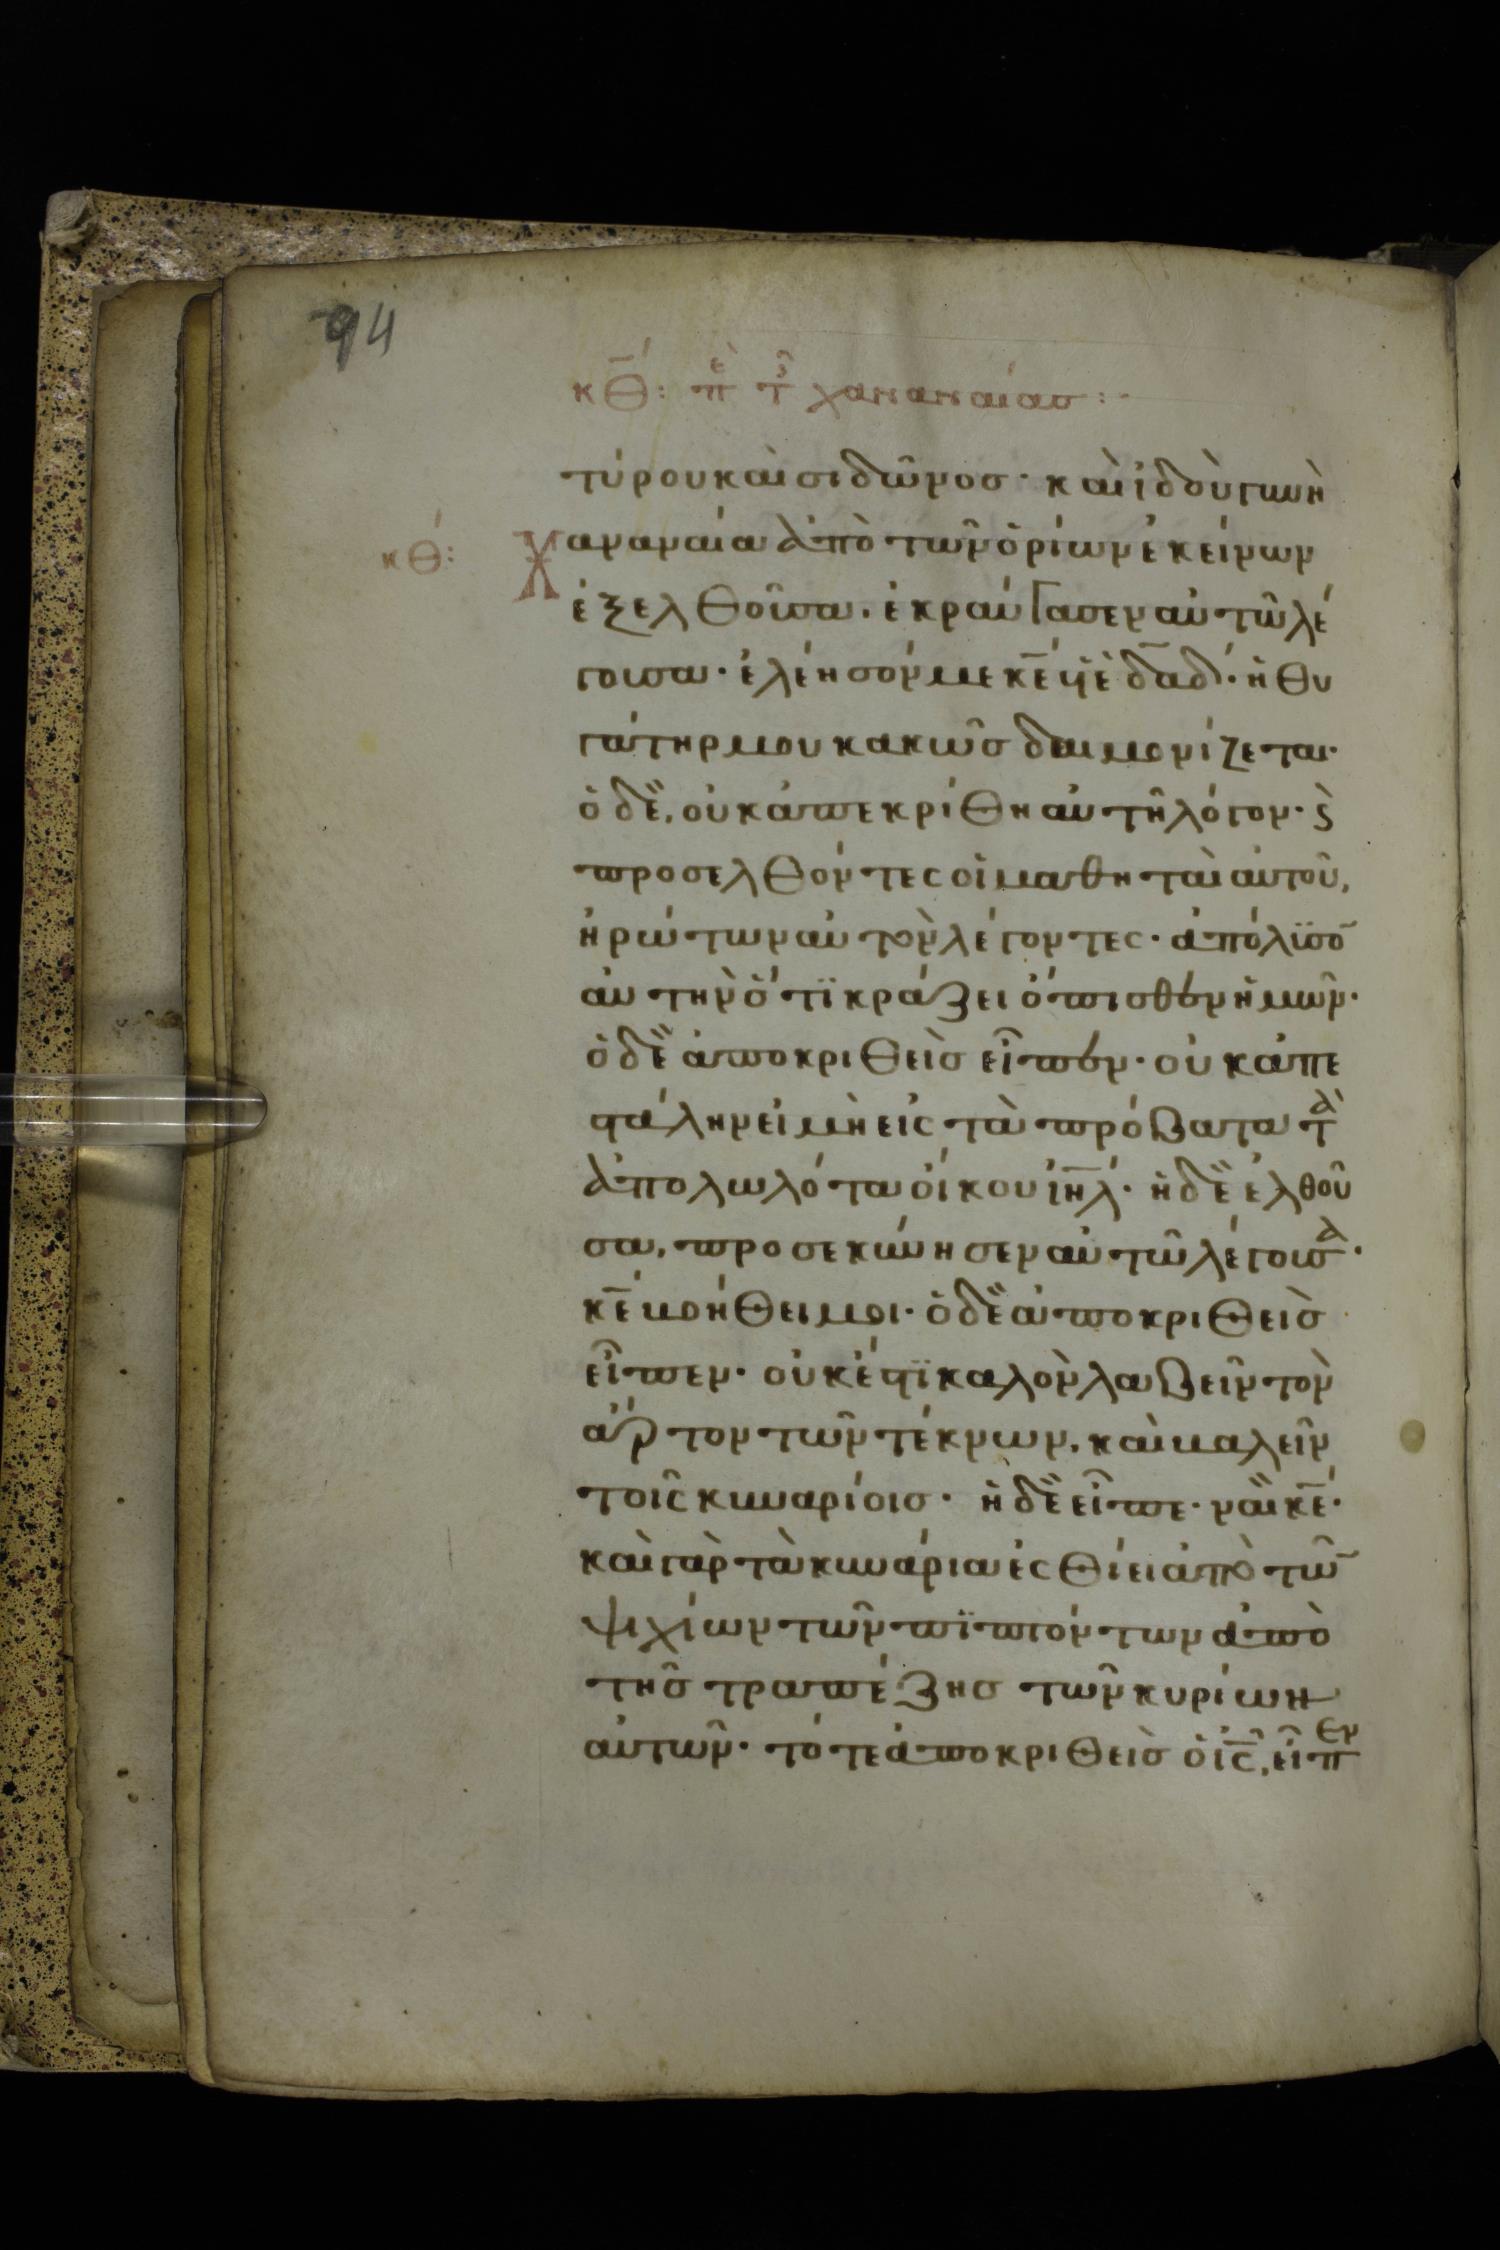 94
κθ: πε τ χαναναίασ:·
τύρου καὶ σιδῶνοσ· καὶ ἰδοὺ γυνὴ
κθ: Χαναναία ἀπὸ τῶν ὁρίων ἐκείνων
ἐξελθοῦσα, ἐκραύγασεν αὐτῶ λέ
γουσα· ἐλέησόν με κε υἱὲ δαδ· ἡ θυ
γάτηρ μου κακῶσ δαιμονίζεται·
ὁ δὲ, οὐκ ἀπεκρίθη αὐτῆ λόγον· ϛ
προσελθόντες οἱ μαθηταὶ αὐτοῦ,
ἠρώτων αὐτὸν λέγοντες· ἀπόλϋσο̄
αὐτὴν ὅτϊ κράζει ὄπισθεν ἡμῶν·
ὁ δὲ ἀποκριθεὶσ εἶπεν· οὐκ ἀπε
στάλην εἰ μὴ εἰς τὰ πρόβατα τὰ
ἀπολωλότα οἴκου ιηλ· ἡ δὲ ἐλθοῦ
σα, προσεκύνησεν αὐτῶ λέγουσα·
κε βοήθει μοι· ὁ δὲ ἀποκριθεὶσ
εἶπεν· οὐκ ἔστϊ καλὸν λαβεῖν τὸν
ἄρτον τῶν τέκνων, καὶ βαλεῖν
τοῖς κυναρίοισ· ἡ δὲ εἶπε· ναὶ κε·
καὶ γὰρ τὰ κυνάρια ἐσθίει ἀπὸ τῶ̄
ψιχίων τῶν πϊπτόντων ἀπὸ
τῆσ τραπέζησ τῶν κυρίων
αὐτῶν· τότε ἀποκριθεὶσ ὁ ις, εἶπεν